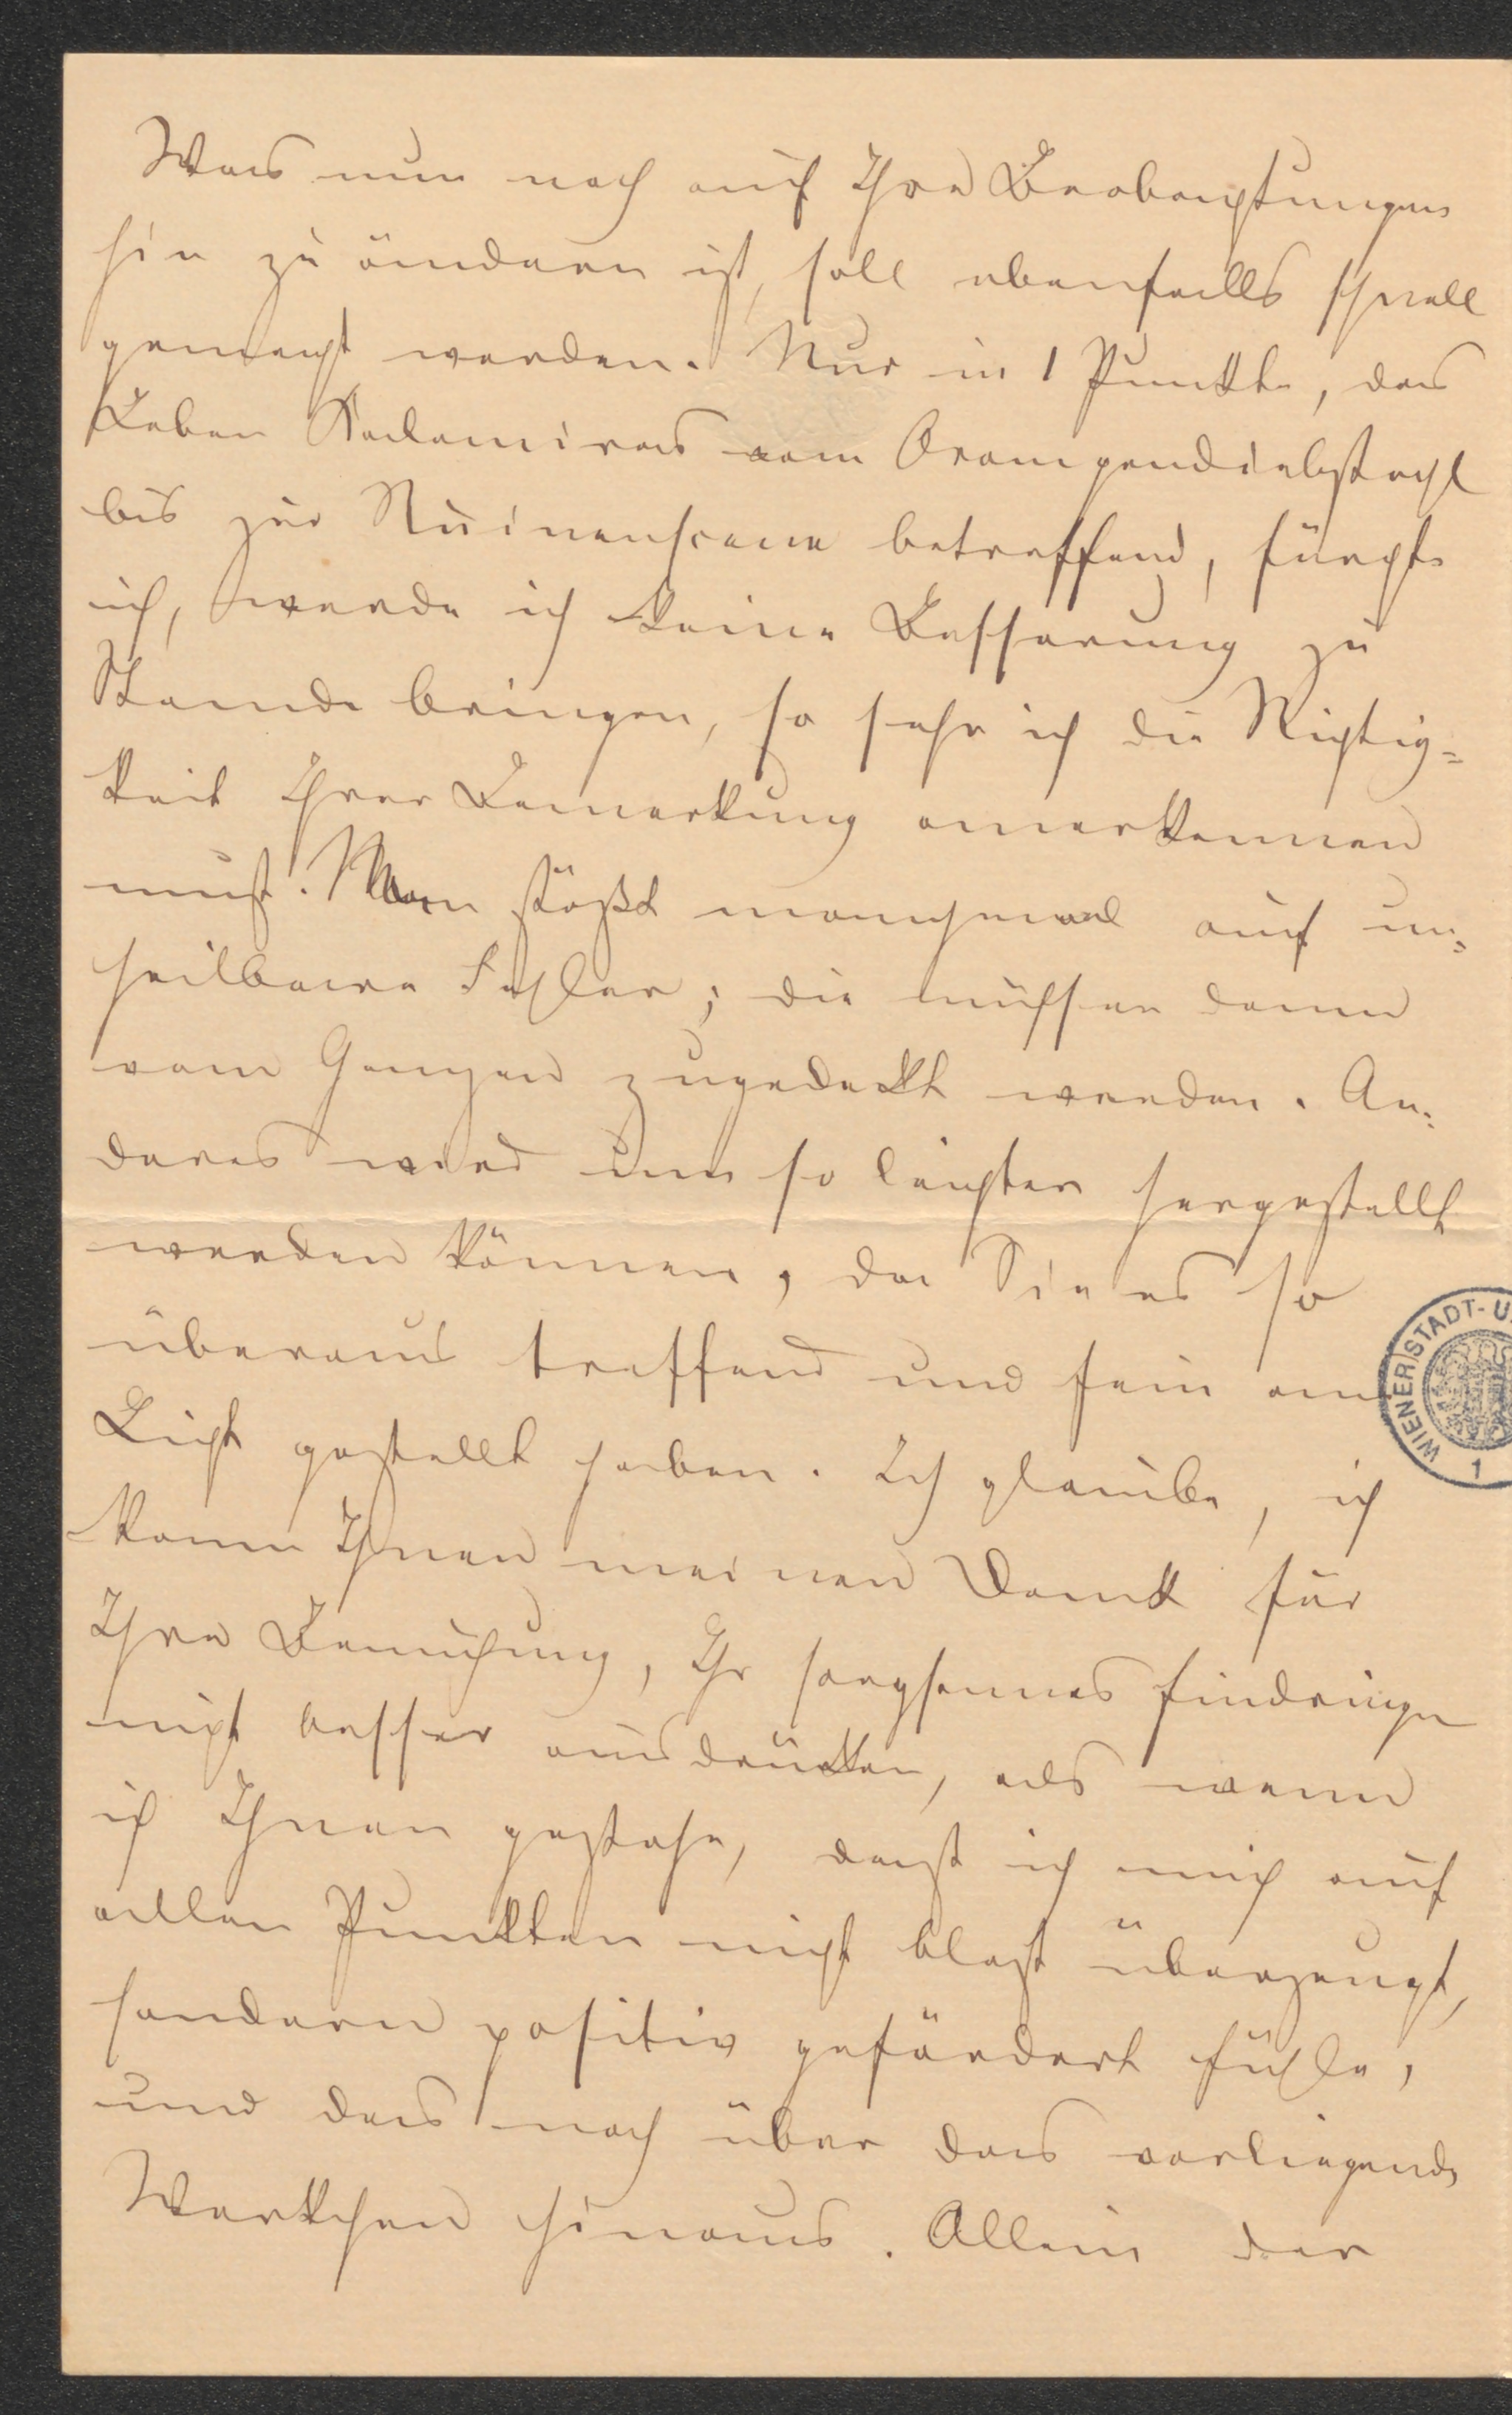 Was nun noch auf Ihre Beobachtungen
hin zu ändern ist, soll ebenfalls schnell
gemacht werden. Nur in 1 Punkte, das
Leben Radamiros vom Orangendiebstahl
bis zur Ruinenscene betreffend, fürchte
ich, werde ich keine Besserung zu
Stande bringen, so sehr ich die Richtig=
keit Ihrer Bemerkung anerkennen
muß. Man stößt manchmal auf un=
heilbare Fehler; die müssen dann
vom Ganzen zugedeckt werden. An=
deres wird um so leichter hergestellt
werden können, da Sie es so
überaus treffend und fein ans
Licht gestellt haben. Ich glaube, ich
kann Ihnen meinen Dank für
Ihre Bemühung, Ihr sorgsames Eindringen
nicht besser ausdrücken, als wenn
ich Ihnen gestehe, daß ich mich auf
allen Punkten nicht bloß überzeugt,
sondern positiv gefördert fühle,
und das noch über das vorliegende
Werkchen hinaus. Allein der
WIENER STADT-U
1